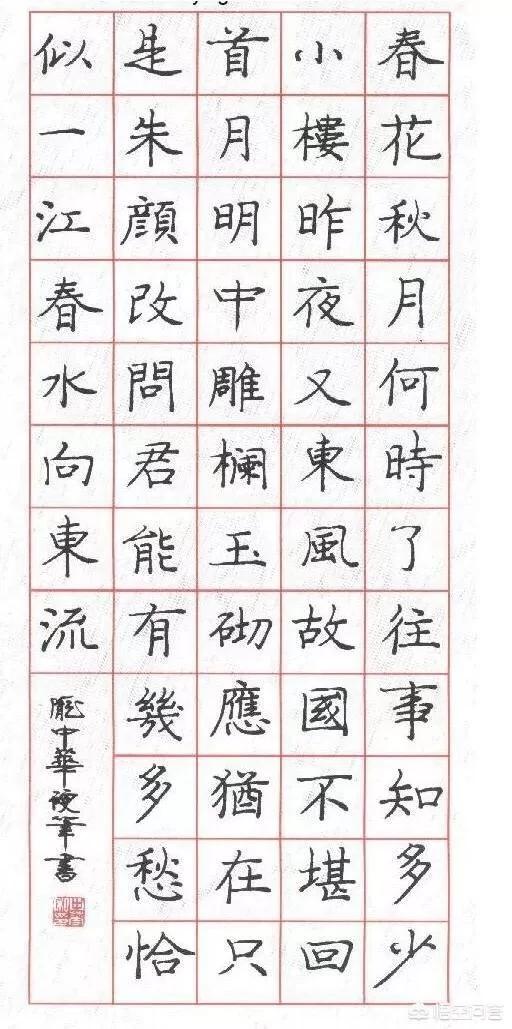 春花秋月何時了往事知多少
小樓昨夜又東風故國不堪回
首月明中雕欄玉砌應猶在只
是朱顏改問君能有幾多愁恰
似一江春水向東流
龐中華硬筆書
悟空问答